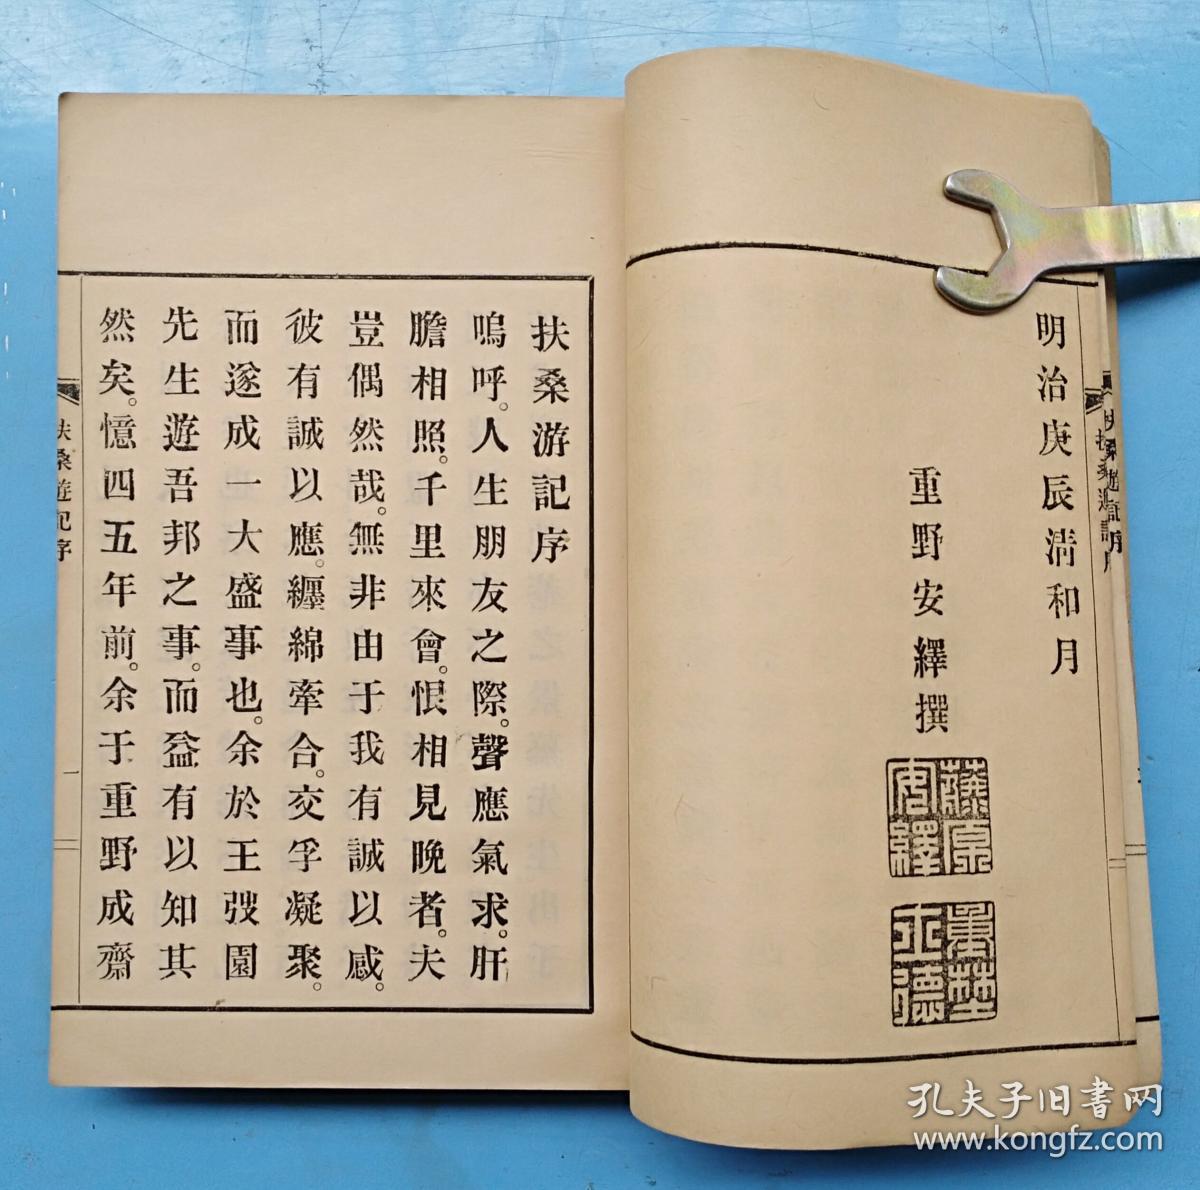 明治庚辰清和月
重野安繹撰
藤原
安繹
重野
士德
扶桑遊記序
扶桑游記序
嗚呼。人生朋友之際。聲應氣求。肝
膽相照。千里來會。恨相見晚者。夫
豈偶然哉。無非由于我有誠以感。
彼有誠以應。纏綿牽合。交孚凝聚。
而遂成一大盛事也。余於王弢園
先生遊吾邦之事。而益有以知其
然矣。憶四五年前。余于重野成齋
扶桑遊記序
一
孔夫子旧书网
www.kongfz.com